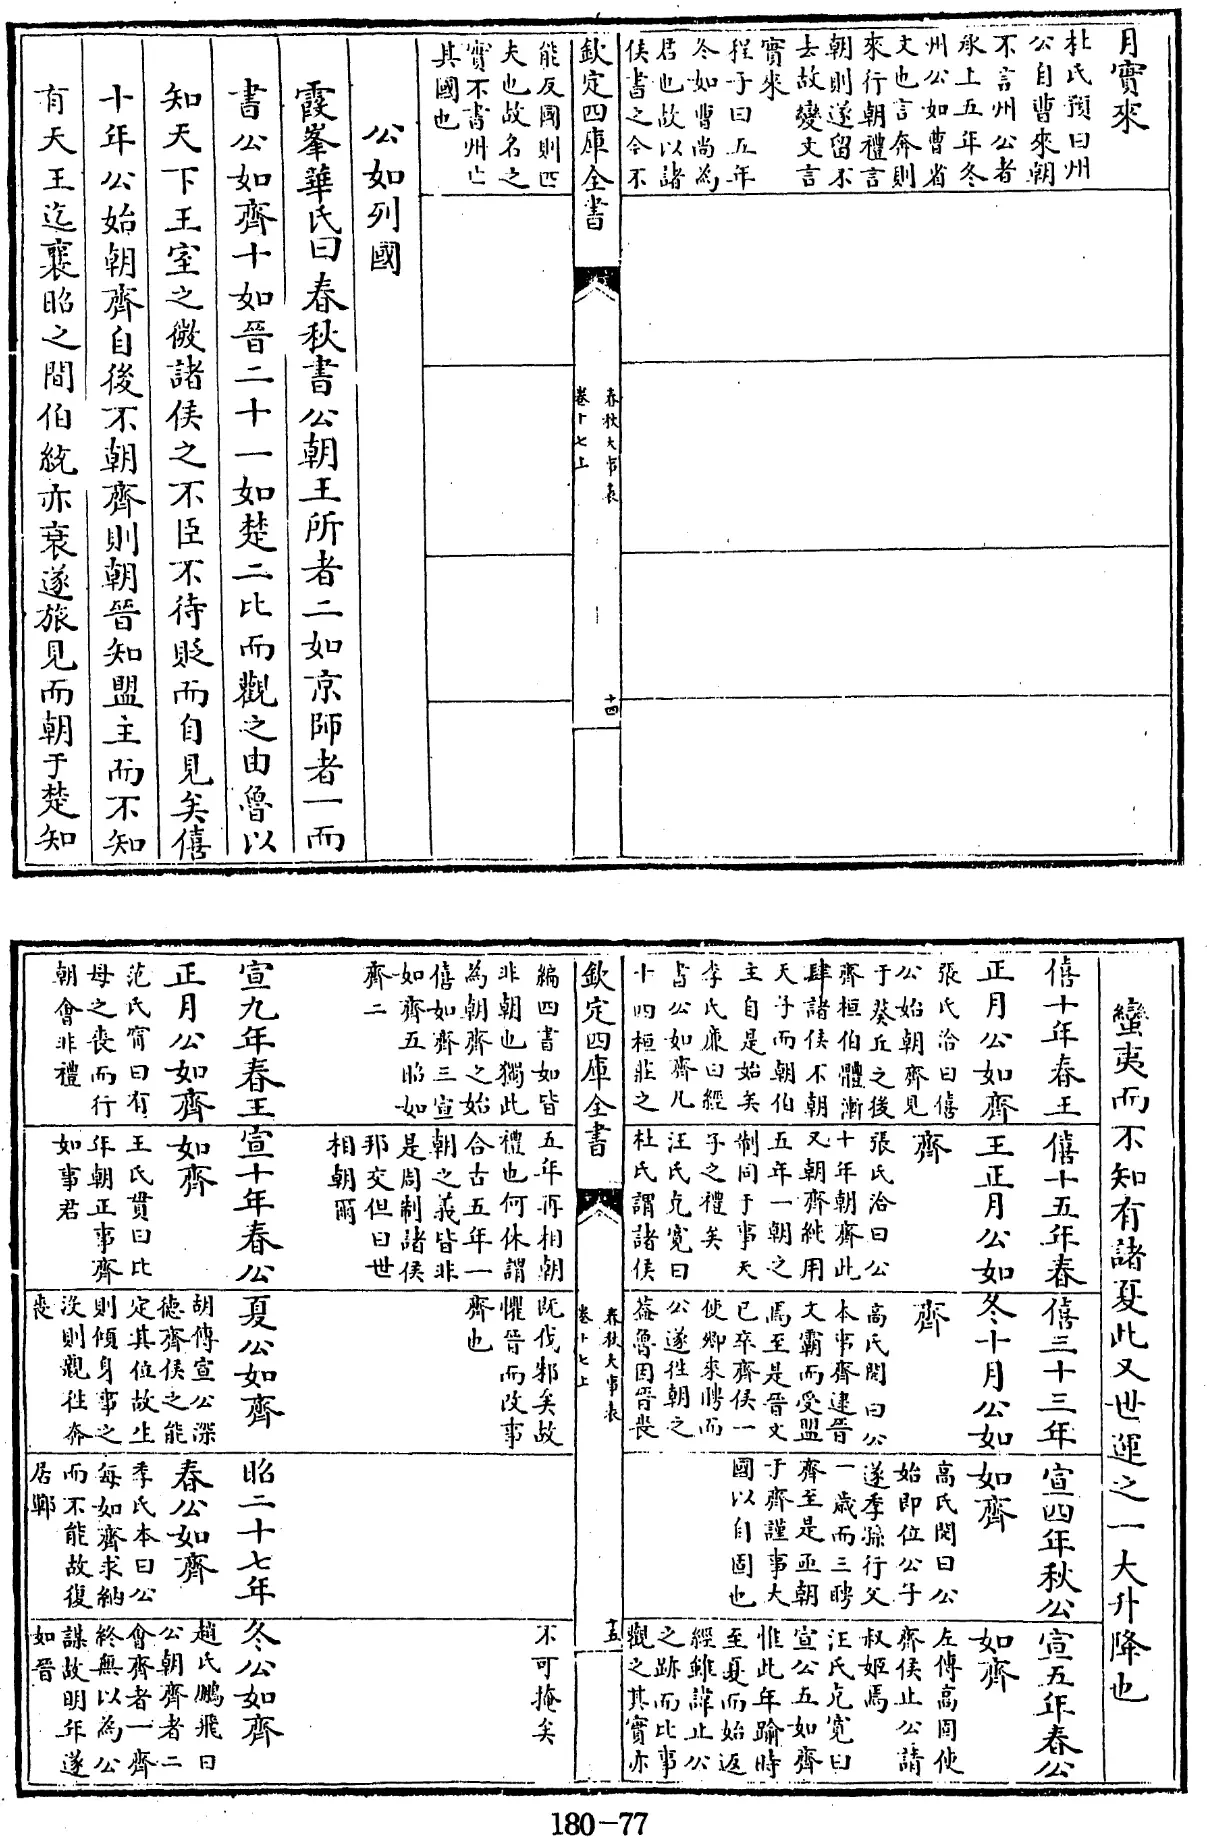 月實來
杜氏預曰州
公自曹來朝
不言州公者
承上五年冬
州公如曹省
文也言奔則
來行朝禮言
朝則遂留不
去故變文言
實來
程子曰五年
冬如曹尚為
君也故以諸
侯書之今不
欽定四庫全書
春秋大事表
卷十七上
十四
能反國則匹
夫也故名之
實不書州亡
其國也
公如列國
霞峯華氏曰春秋書公朝王所者二如京師者一而
書公如齊十如晉二十一如楚二比而觀之由魯以
知天下王室之微諸侯之不臣不待貶而自見矣僖
十年公始朝齊自後不朝齊則朝晉知盟主而不知
有天王迄襄昭之間伯統亦衰遂旅見而朝于楚知
蠻夷而不知有諸夏此又世運之一大升降也
僖十年春王
正月公如齊
張氏洽曰僖
公始朝齊見
于葵丘之後
齊桓伯體漸
肆諸侯不朝
天子而朝伯
主自是始矣
李氏廉曰經
書公如齊凡
十四桓莊之
僖十五年春
王正月公如
齊
張氏洽曰公
十年朝齊此
又朝齊純用
五年一朝之
制同于事天
子之禮矣
汪氏克寛曰
杜氏謂諸侯
僖三十三年
冬十月公如
齊
高氏閌曰公
本事齊逮晉
文霸而受盟
焉至是晉文
已卒齊侯一
使卿來聘而
公遂往朝之
葢魯因晉喪
宣四年秋公
如齊
高氏閌曰公
始即位公子
遂季孫行父
一歲而三聘
齊至是亟朝
于齊謹事大
國以自固也
宣五年春公
如齊
左傳高固使
齊侯止公請
叔姬焉
汪氏克寛曰
宣公五如齊
惟此年踰時
至夏而始返
經雖諱止公
之跡而比事
觀之其實亦
欽定四庫全書
春秋大事表
卷十七上
十五
編四書如皆
非朝也獨此
為朝齊之始
僖如齊三宣
如齊五昭如
齊二
五年再相朝
禮也何休謂
合古五年一
朝之義皆非
是周制諸侯
邦交但曰世
相朝爾
既伐邾矣故
懼晉而改事
齊也
不可掩矣
宣九年春王
正月公如齊
范氏甯曰有
母之喪而行
朝會非禮
宣十年春公
如齊
王氏貫曰比
年朝正事齊
如事君
夏公如齊
胡傳宣公深
徳齊侯之能
定其位故生
則傾身事之
沒則親往奔
喪
昭二十七年
春公如齊
季氏本曰公
每如齊求納
而不能故復
居鄆
冬公如齊
趙氏鵬飛曰
公朝齊者二
會齊者一齊
終無以為公
謀故明年遂
如晉
180-77